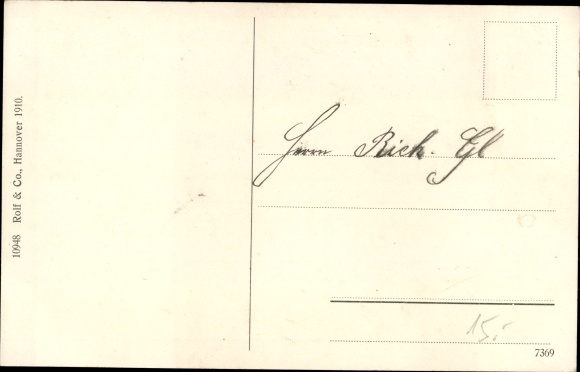 10948 Rolf & Co., Hannover 1910.
Herrn Rich. Gl
15,-
7369